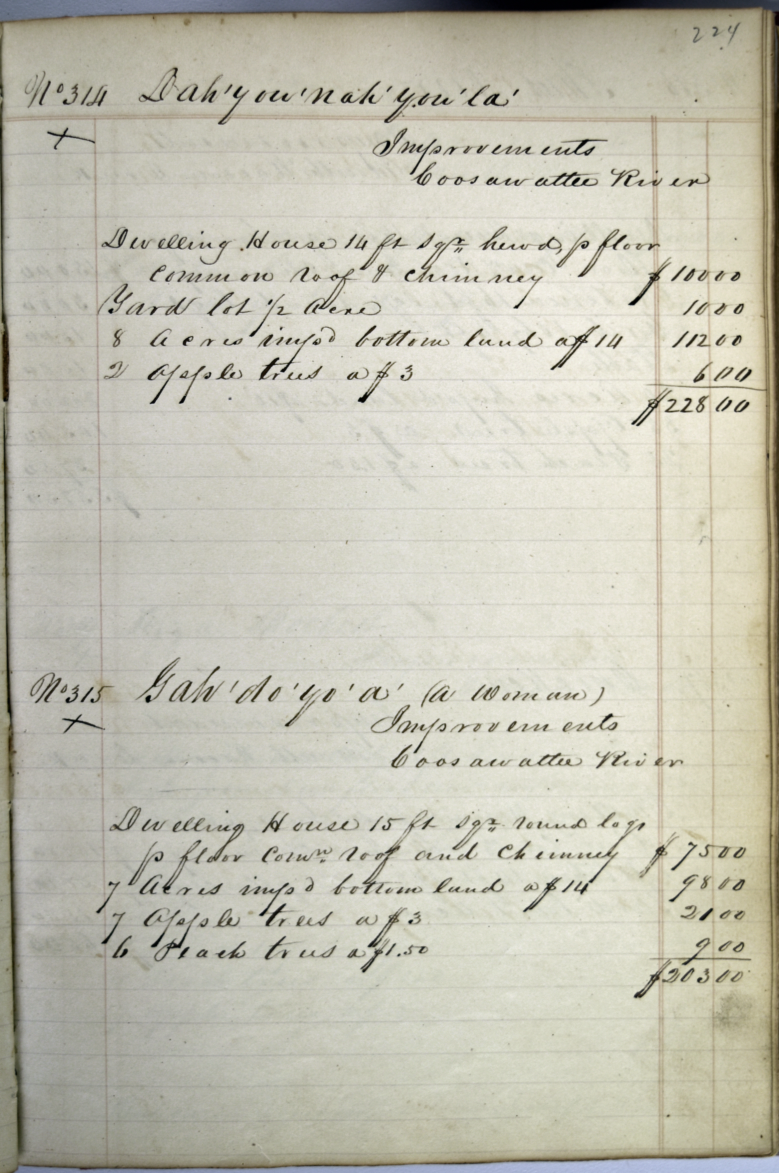 224
No 314 Dah'you'nah'you'la'
Improvements
Coosawattee River
Dwelling House 14 ft sqr. hewd, p floor
common roof & chimney $ 100 00
Yard lot 1/2 Acre 10 00
8 Acres impd bottom land a $14 112 00
2 Apple trees a $3 6 00
$228 00
No 315 Gah'do'yo'a' (a woman)
Improvements
Coosawattee River
Dwelling House 15 ft sqr. round logs
p floor Comn. roof and Chimney $ 75 00
7 Acres impd bottom land a $14 98 00
7 Apple trees a $3 21 00
6 Peach trees a $1.50 9 00
$203 00